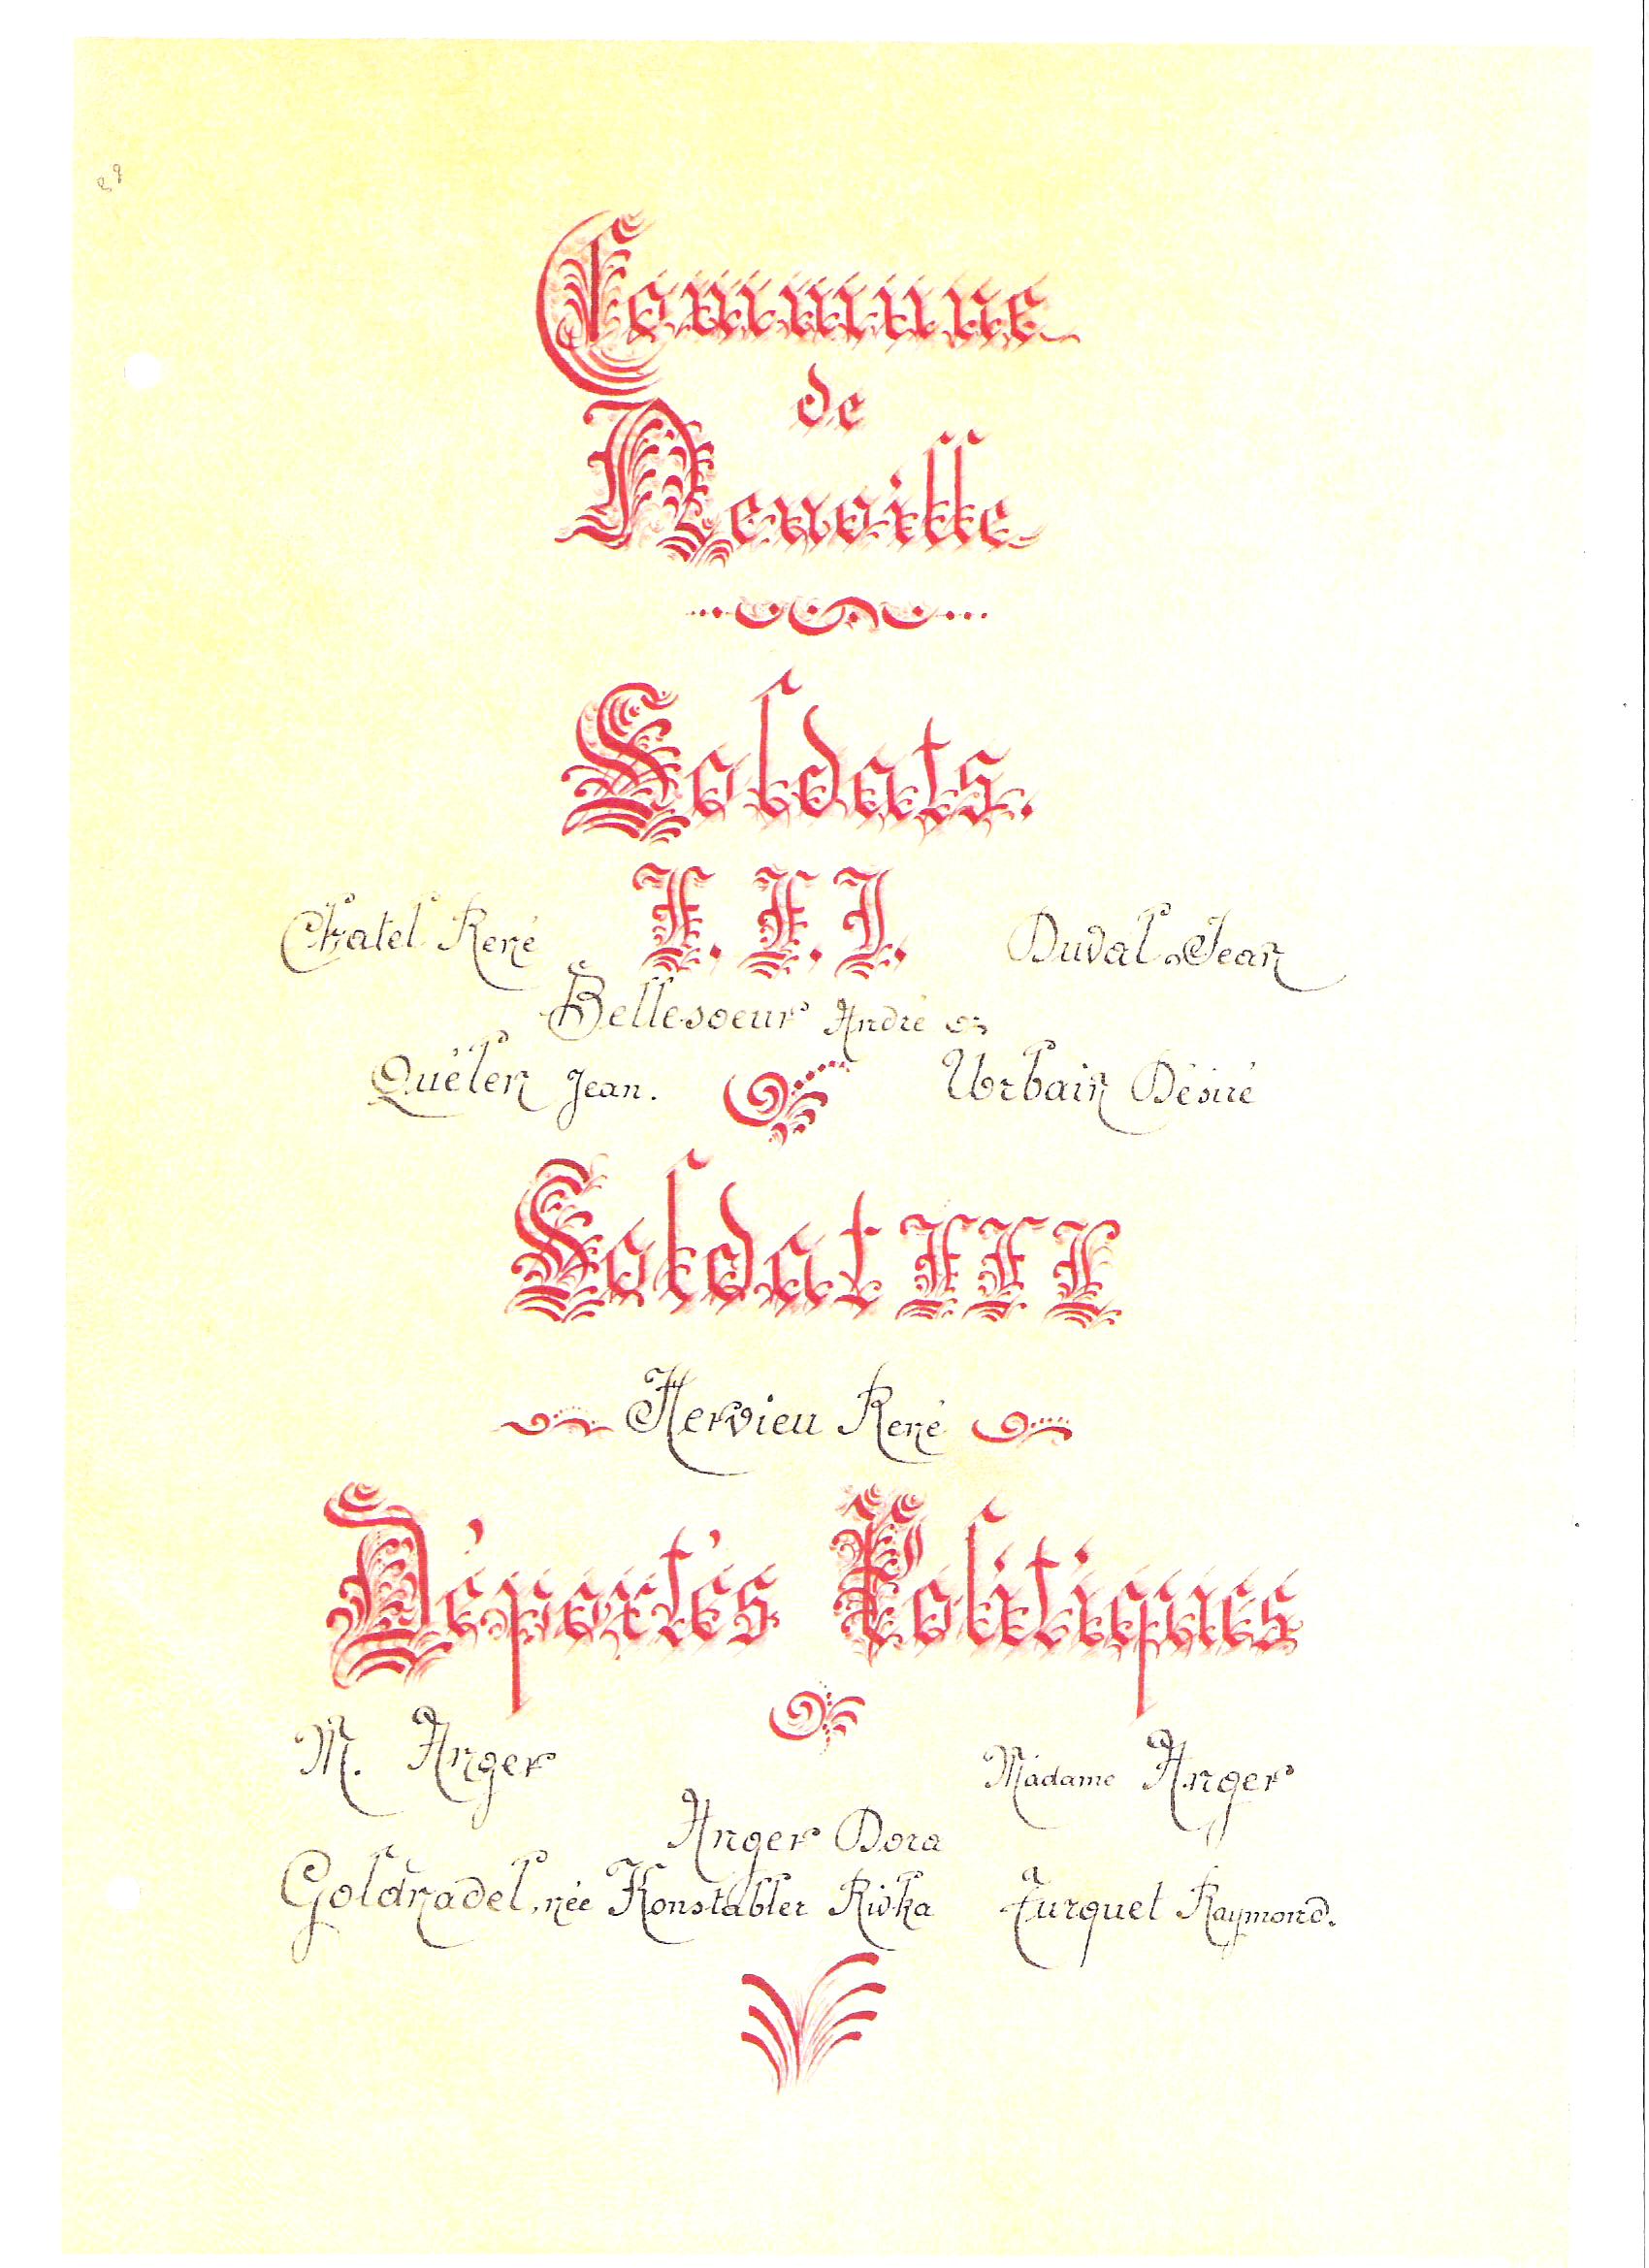 Commune
de
Neuville
Soldats.
F. F. I.
Chatel René
Duval Jean
Bellesoeur André
Quélen Jean.
Urbain Désiré
Soldat FFL
Hervieu René
Déportés Politiques
M. Anger
Madame Anger
Anger Dora
Goldnadel, née Konstabler Rivka
Turquet Raymond.